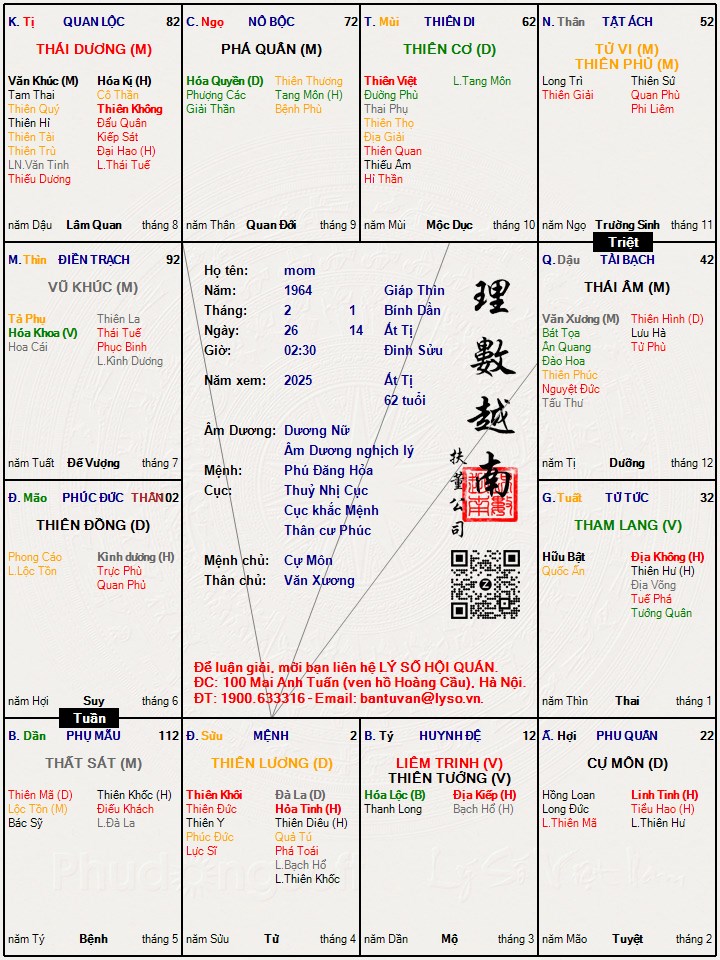 K. Tị QUAN LỘC 82
THÁI DƯƠNG (M)
Văn Khúc (M) Hóa Kị (H)
Tam Thai Cô Thần
Thiên Quý Thiên Không
Thiên Hỉ Đẩu Quân
Thiên Tài Kiếp Sát
Thiên Trù Đại Hao (H)
LN.Văn Tinh L.Thái Tuế
Thiếu Dương
năm Dậu Lâm Quan tháng 8
C. Ngọ NÔ BỘC 72
PHÁ QUÂN (M)
Hóa Quyền (D) Thiên Thương
Phượng Các Tang Môn (H)
Giải Thần Bệnh Phù
năm Thân Quan Đới tháng 9
T. Mùi THIÊN DI 62
THIÊN CƠ (D)
Thiên Việt L.Tang Môn
Đường Phù
Thai Phụ
Thiên Thọ
Địa Giải
Thiên Quan
Thiếu Âm
Hỉ Thần
năm Mùi Mộc Dục tháng 10
N. Thân TẬT ÁCH 52
TỬ VI (M)
THIÊN PHỦ (M)
Long Trì Thiên Sứ
Thiên Giải Quan Phù
Phi Liêm
năm Ngọ Trường Sinh tháng 11
Triệt
M. Thìn ĐIỀN TRẠCH 92
VŨ KHÚC (M)
Tả Phụ Thiên La
Hóa Khoa (V) Thái Tuế
Hoa Cái Phục Binh
L.Kình Dương
năm Tuất Đế Vượng tháng 7
Họ tên: mom
Năm: 1964 Giáp Thìn
Tháng: 2 1 Bính Dần
Ngày: 26 14 Ất Tị
Giờ: 02:30 Đinh Sửu
Năm xem: 2025 Ất Tị
62 tuổi
Âm Dương: Dương Nữ
Âm Dương nghịch lý
Mệnh: Phú Đăng Hỏa
Cục: Thuỷ Nhị Cục
Cục khắc Mệnh
Thân cư Phúc
Mệnh chủ: Cự Môn
Thân chủ: Văn Xương
理數越南
扶董公司
Để luận giải, mời bạn liên hệ LÝ SỐ HỘI QUÁN.
ĐC: 100 Mai Anh Tuấn (ven hồ Hoàng Cầu), Hà Nội.
ĐT: 1900.633316 - Email: bantuvan@lyso.vn.
Q. Dậu TÀI BẠCH 42
THÁI ÂM (M)
Văn Xương (M) Thiên Hình (D)
Bát Tọa Lưu Hà
Ân Quang Tử Phù
Đào Hoa
Thiên Phúc
Nguyệt Đức
Tấu Thư
năm Tị Dưỡng tháng 12
Đ. Mão PHÚC ĐỨC THÂN 102
THIÊN ĐỒNG (D)
Phong Cáo Kình dương (H)
L.Lộc Tồn Trực Phù
Quan Phủ
năm Hợi Suy tháng 6
Tuần
G. Tuất TỬ TỨC 32
THAM LANG (V)
Hữu Bật Địa Không (H)
Quốc Ấn Thiên Hư (H)
Địa Võng
Tuế Phá
Tướng Quân
năm Thìn Thai tháng 1
B. Dần PHỤ MẪU 112
THẤT SÁT (M)
Thiên Mã (D) Thiên Khốc (H)
Lộc Tồn (M) Điếu Khách
Bác Sỹ L.Đà La
năm Tý Bệnh tháng 5
Đ. Sửu MỆNH 2
THIÊN LƯƠNG (D)
Thiên Khôi Đà La (D)
Thiên Đức Hỏa Tinh (H)
Thiên Y Thiên Diêu (H)
Phúc Đức Quả Tú
Lực Sĩ Phá Toái
L.Bạch Hổ
L.Thiên Khốc
năm Sửu Tử tháng 4
B. Tý HUYNH ĐỆ 12
LIÊM TRINH (V)
THIÊN TƯỚNG (V)
Hóa Lộc (B) Địa Kiếp (H)
Thanh Long Bạch Hổ (H)
năm Dần Mộ tháng 3
Ấ. Hợi PHU QUÂN 22
CỰ MÔN (D)
Hồng Loan Linh Tinh (H)
Long Đức Tiểu Hao (H)
L.Thiên Mã L.Thiên Hư
năm Mão Tuyệt tháng 2